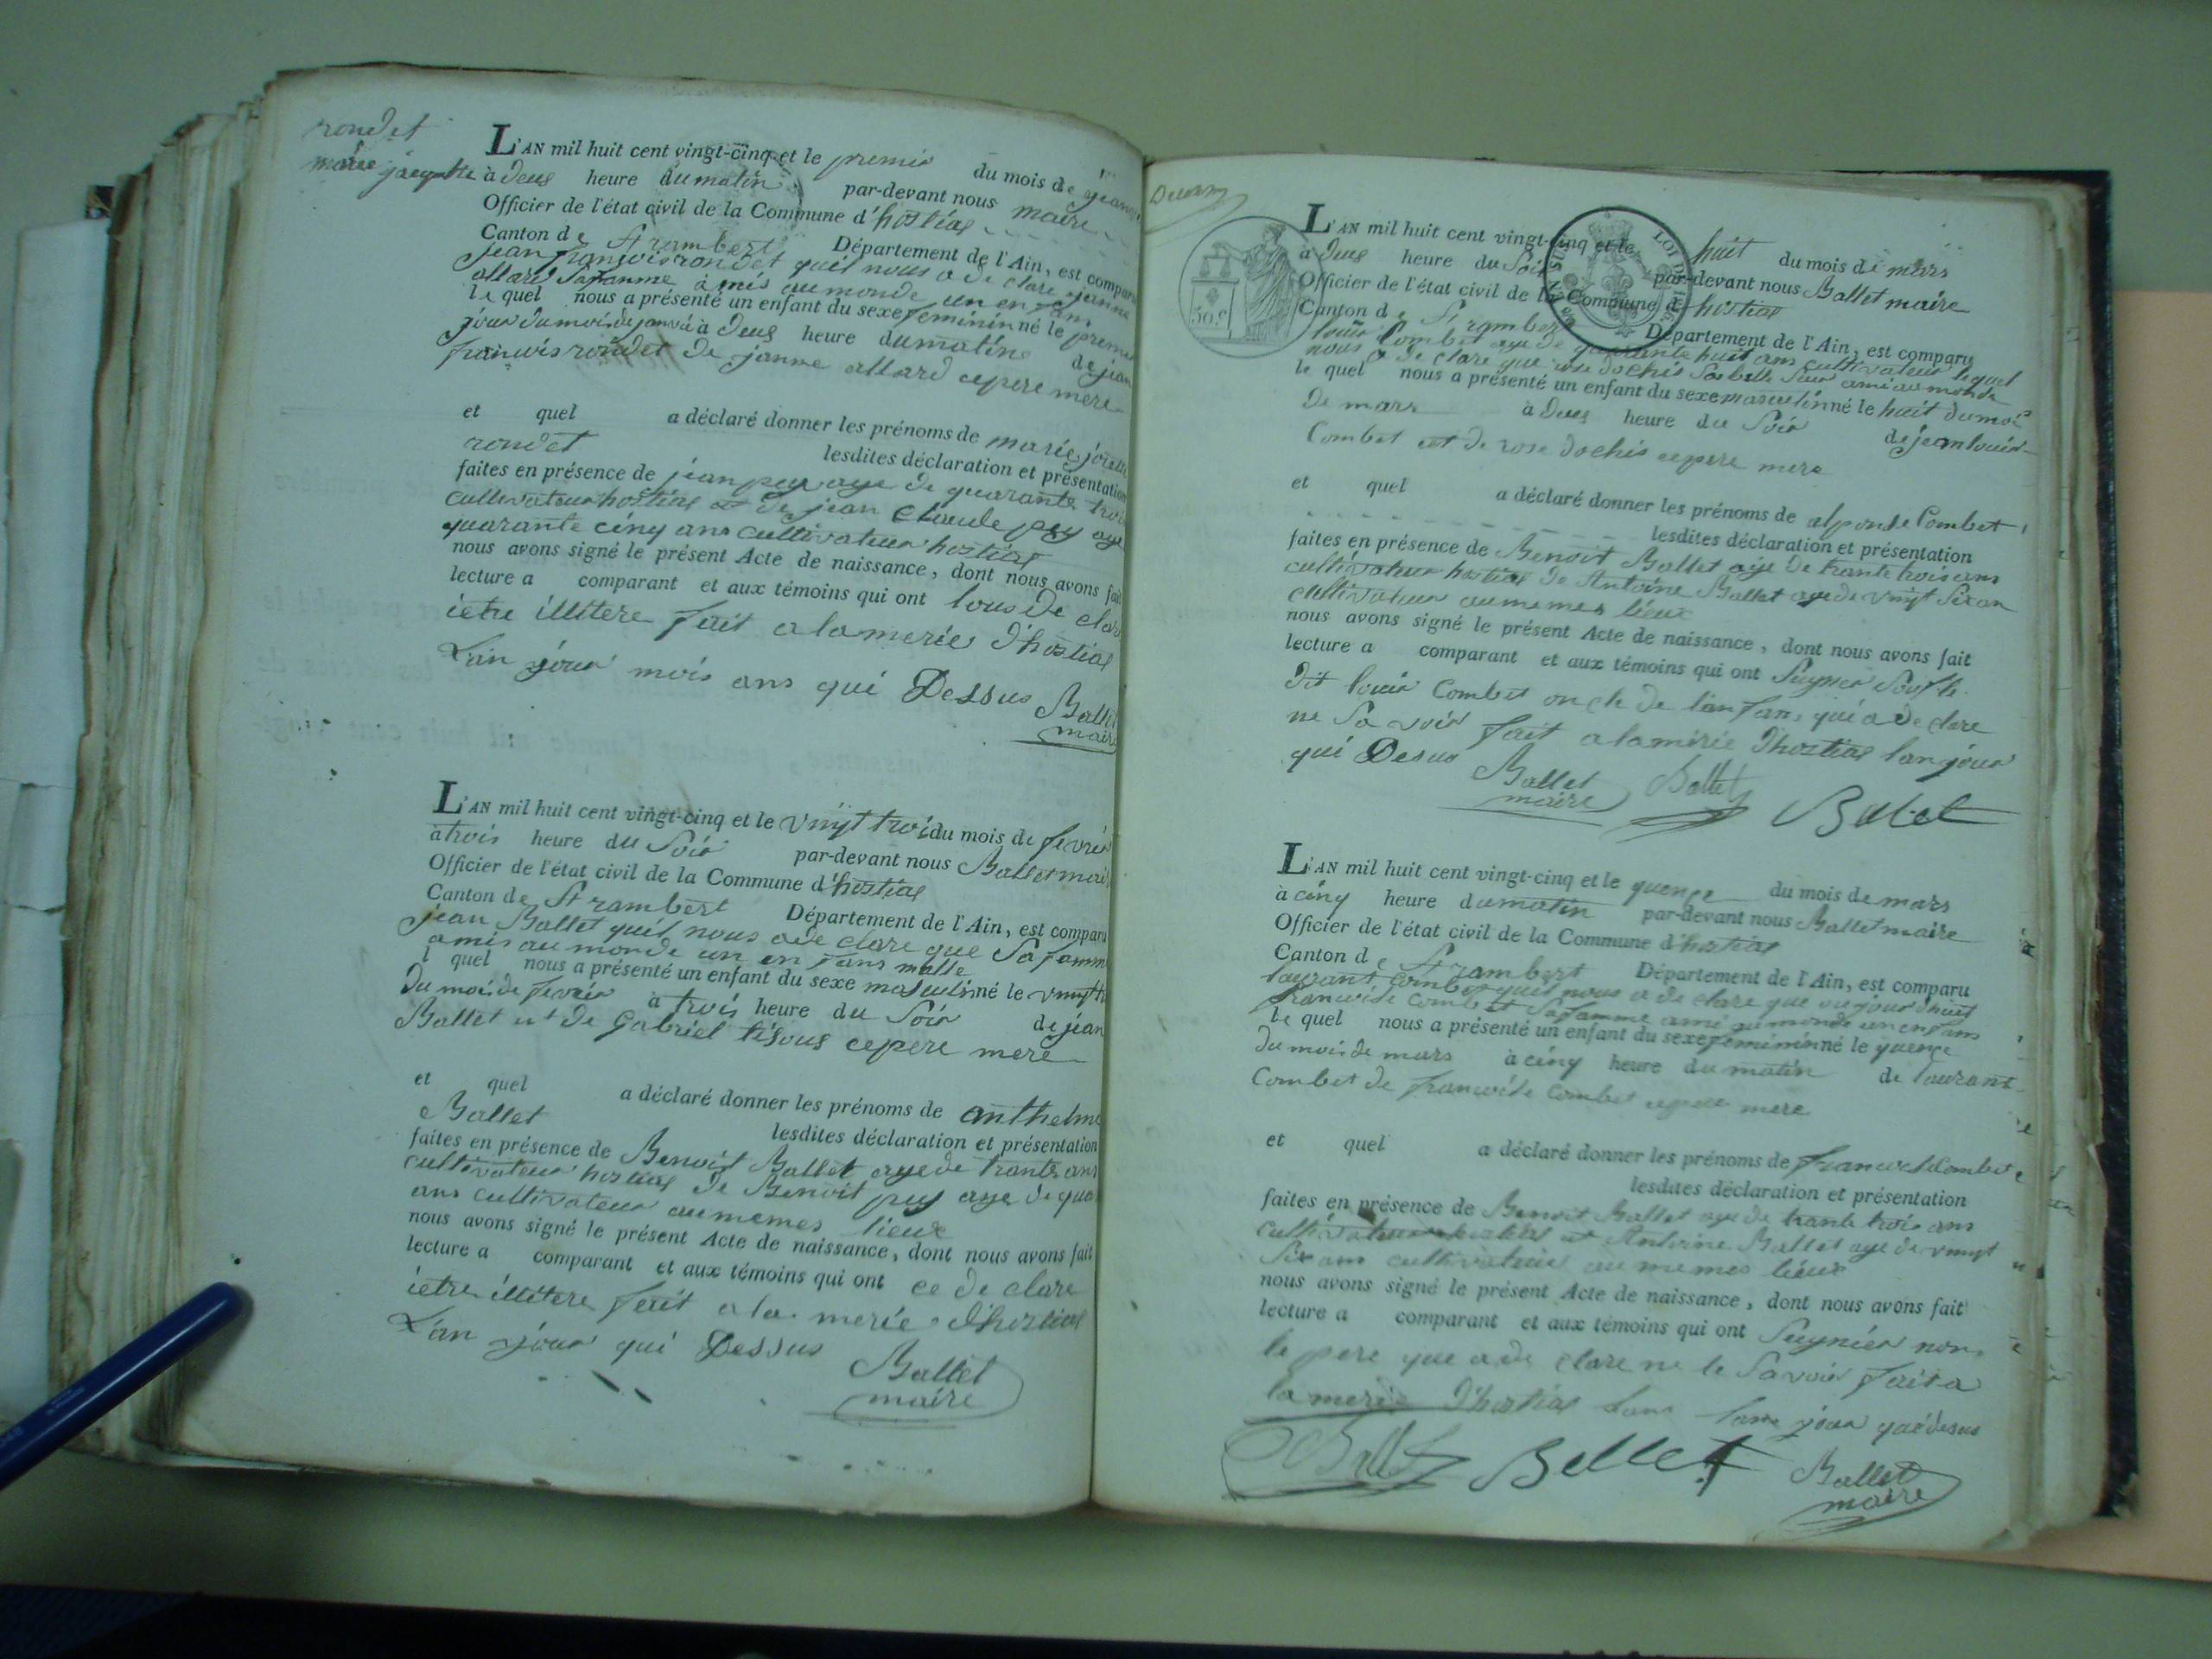 rondet
marie
L'AN mil huit cent vingt-cinq et le premier du mois de
à deus heure du matin par-devant nous maire
Officier de l'état civil de la Commune d'hostias
Canton de St rambert Département de l'Ain, est comparu
jean françois rondet quil nous a de clare jeanne
allard Safamme à mis au monde un en fans
le quel nous a présenté un enfant du sexe feminin né le premie
jour du mois de janvié à deus heure du matin de jean
francois rondet de janne allard cepere mere
et quel a déclaré donner les prénoms de marie
rondet lesdites déclaration et présentation
faites en présence de jean pey aye de quarante trois
cultivateur hostias et de jean claude pey aye
quarante cinq ans cultivateur hostias
nous avons signé le présent Acte de naissance, dont nous avons fait
lecture a comparant et aux témoins qui ont tous de clare
ietre illitere fait a la merie d'hostias
L'an jour mois ans qui Dessus Ballet
maire
L'AN mil huit cent vingt-cinq et le vinyt troi du mois de fevrié
à trois heure du Soir par-devant nous Ballet maire
Officier de l'état civil de la Commune d'hostias
Canton de St rambert Département de l'Ain, est comparu
jean Ballet quil nous a de clare que Sa famme
amis au monde un en fans malle
l quel nous a présenté un enfant du sexe masculin né le vinyt
du mois de fevrié à trois heure du Soir de jean
Ballet et de Gabriel tisous cepere mere
et quel a déclaré donner les prénoms de anthelme
Ballet lesdites déclaration et présentation
faites en présence de Benoit Ballet aye de trante ans
cultivateur hostias de Benoit pey aye de qua
ans cultivateur au memes lieux
nous avons signé le présent Acte de naissance, dont nous avons fait
lecture a comparant et aux témoins qui ont ce de clare
ietre illitere fait a la merie d'hostias
L'an jour qui Dessus
Ballet
maire
L'AN mil huit cent vingt-cinq et le huit du mois de mars
à deus heure du Soir par-devant nous Ballet maire
Officier de l'état civil de la Commune d'hostias
Canton de St rambert Département de l'Ain, est comparu
50 c.
louis Combet aye de quarante huit ans cultivateur lequel
nous a de clare que rose dochis Sa belle Seur amis au monde
le quel nous a présenté un enfant du sexe masculin né le huit du moi
de mars à deus heure du Soir de jean louis
Combet et de rose dochis cepere mere
et quel a déclaré donner les prénoms de alponse Combet
lesdites déclaration et présentation
faites en présence de Benoit Ballet aye de trante trois ans
cultivateur hostias de Antoine Ballet aye de vinyt Six an
cultivateur au memes lieux
nous avons signé le présent Acte de naissance, dont nous avons fait
lecture a comparant et aux témoins qui ont
dit louis Combet oncle de lanfans qui a de clare
ne Sa voir fait a la mérie d'hostias lan jour
qui Desus
Ballet
maire Ballet Ballet
L'AN mil huit cent vingt-cinq et le quenze du mois de mars
à cinq heure du matin par-devant nous Ballet maire
Officier de l'état civil de la Commune d'hostias
Canton de St rambert Département de l'Ain, est comparu
laurant Combet quil nous a de clare que aujourdhuit
francoise Combet Safamme amis au monde un enfans
le quel nous a présenté un enfant du sexe feminin né le quenze
du mois de mars à cinq heure du matin de laurant
Combet de francoise Combet cepere mere
et quel a déclaré donner les prénoms de Combet
lesdites déclaration et présentation
faites en présence de Benoit Ballet aye de trante trois ans
cultivateur hostias et Antoine Ballet aye de vinyt
Six ans cultivateur au memes lieux
nous avons signé le présent Acte de naissance, dont nous avons fait
lecture a comparant et aux témoins qui ont Seignier non
le pere que a de clare ne le Savoir fait a
la merie d'hostias jour que desus
Ballet Bellet Ballet
maire